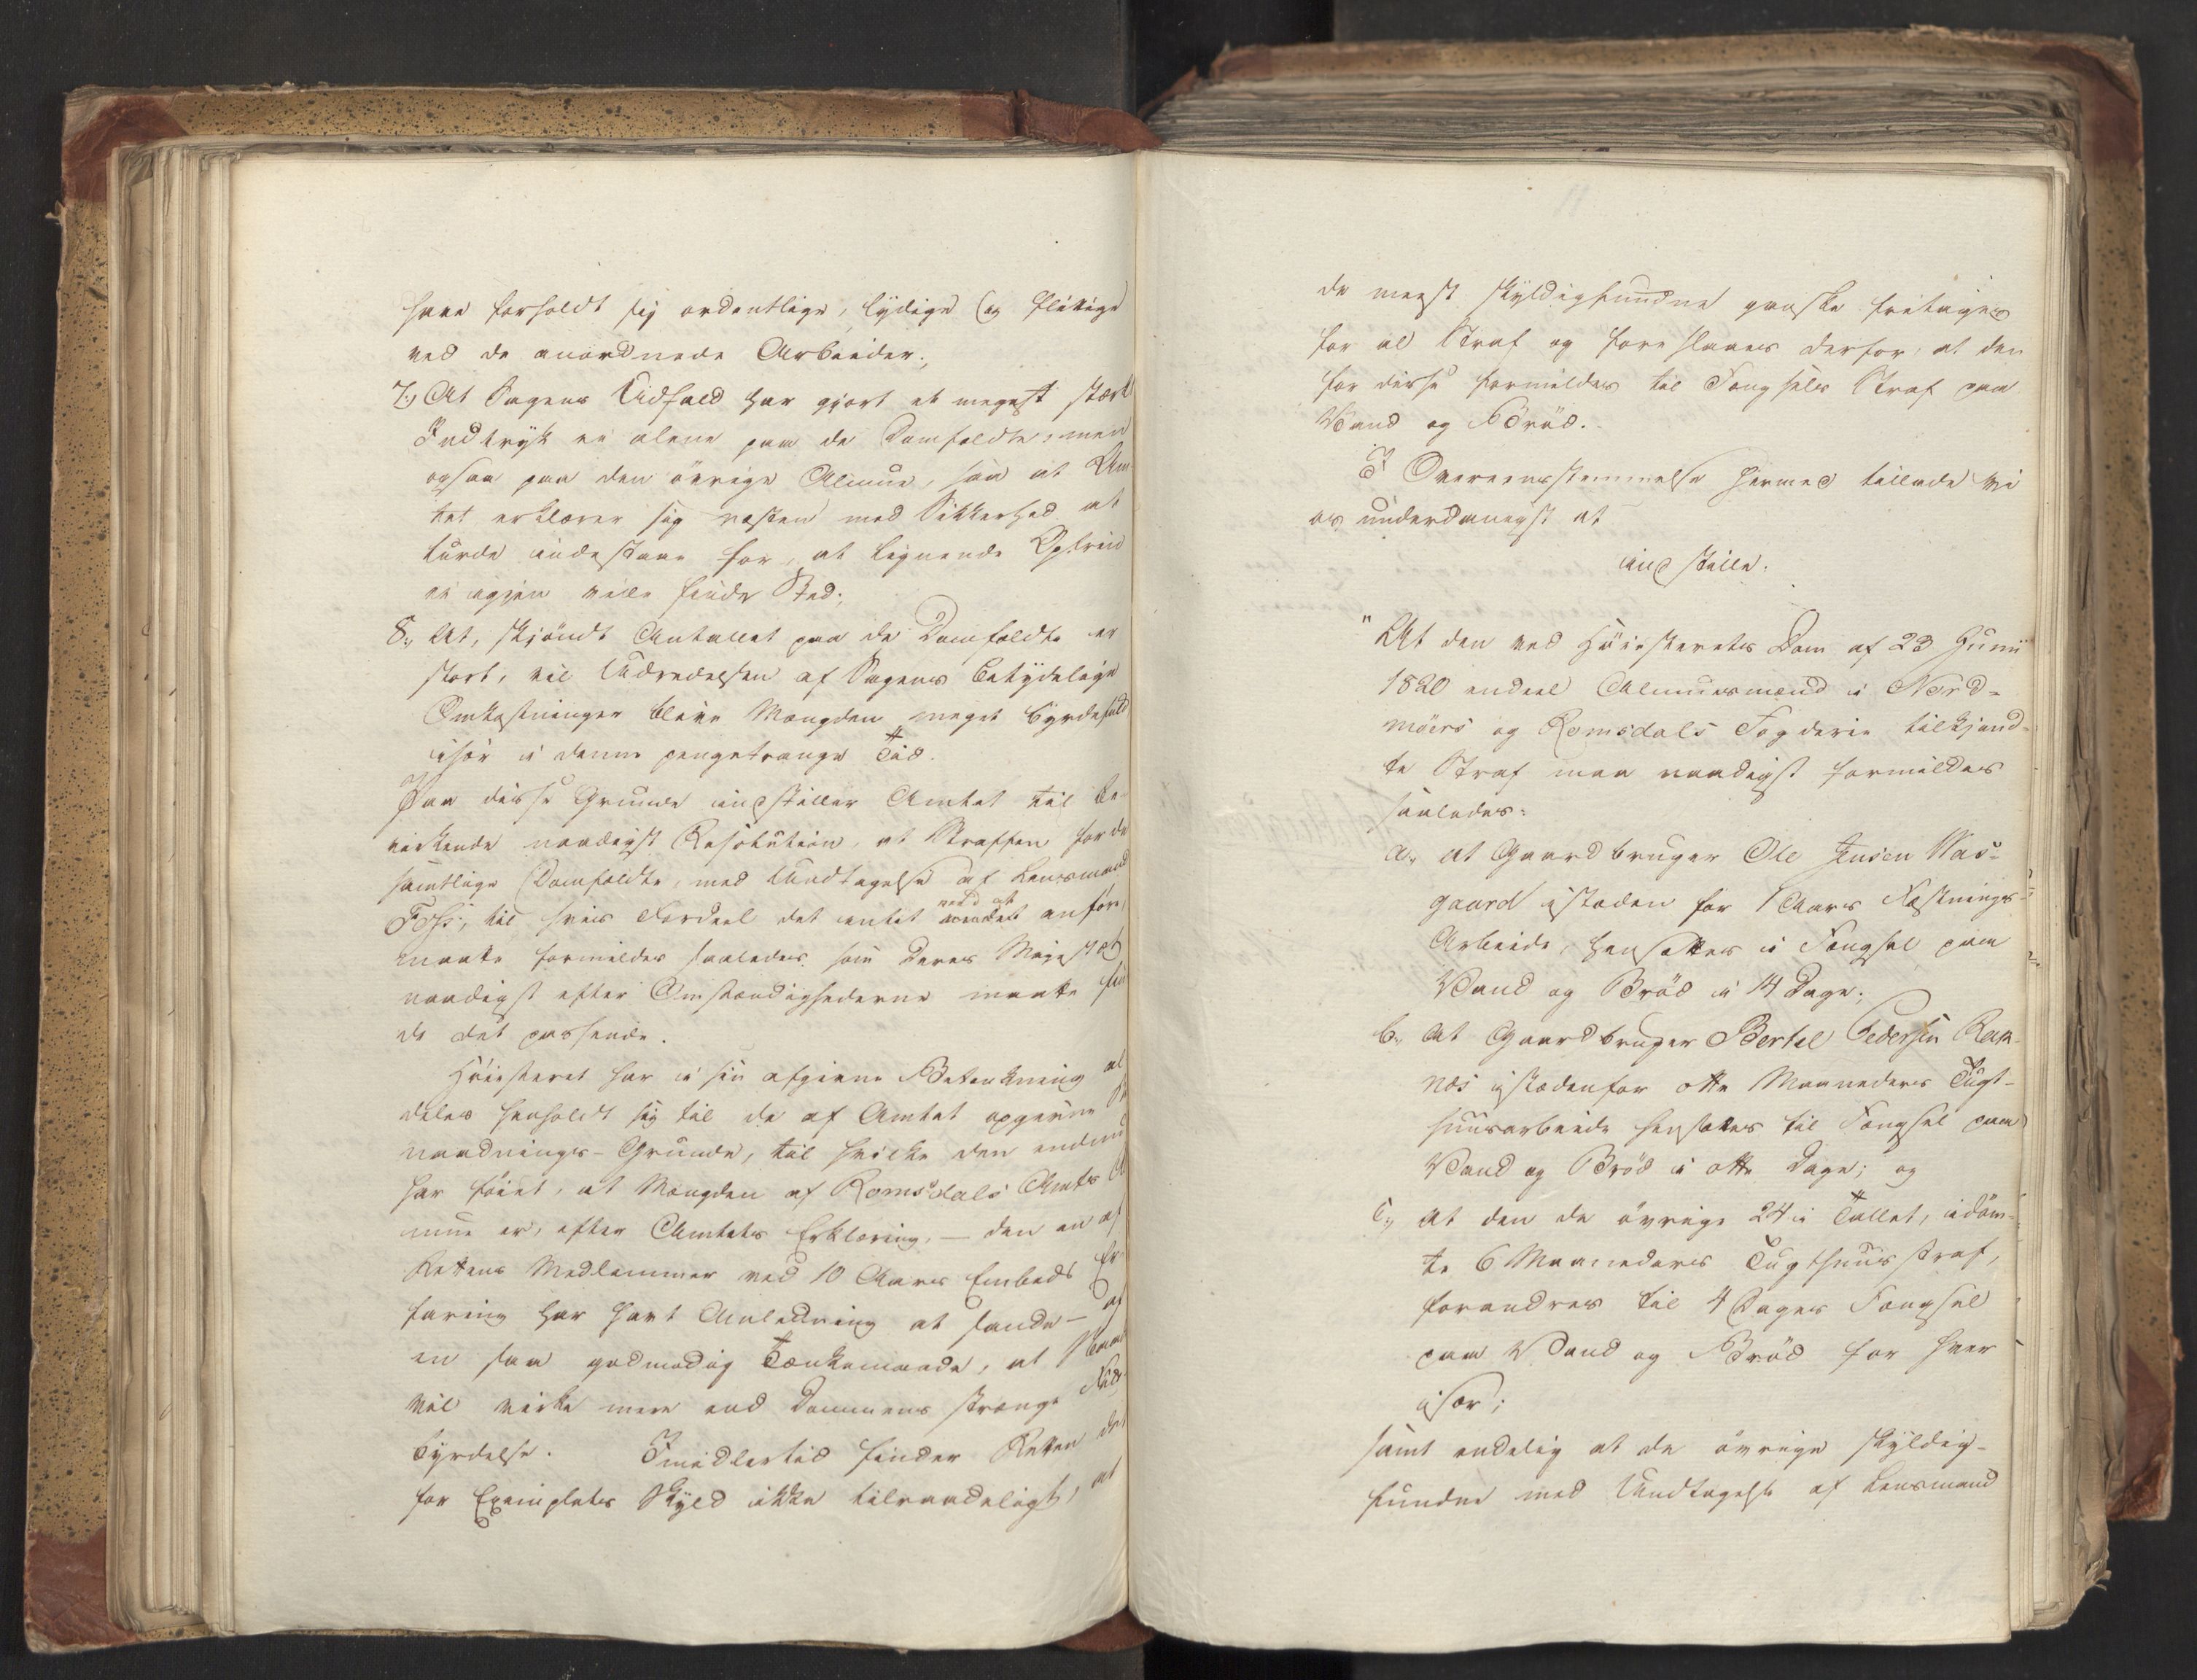 have forholdt sig ordentlige, lydige og flittige
ved de anordnede Arbeider;
7., At Sagens Udfald har gjort et meget stærkt
Indtryk ei alene paa de Domfældte, men
ogsaa paa den øvrige Almue, saa at Am-
tet erklærer sig næsten med Sikkerhed at
turde indestaae for, at lignende Optrin
ei igjen ville finde Sted;
8., At, skjøndt Antallet paa de Domfældte er
stort, vil Udredelsen af Sagens betydelige
Omkostninger blive Mængden meget byrdefuld
især i denne pengetrange Tid.
Paa disse Grunde indstiller Amtet til be-
virkende naadigst Resolution, at Straffen for de
samtlige Domfældte, med Undtagelse af Lensmand
Foss, til hvis Fordeel det intet veed at anføre,
maatte formildes saaledes som Deres Majestæt
naadigst efter Omstændighederne maatte fin-
de det passende.
Høiesteret har i sin afgivne Betænkning al-
deles henholdt sig til de af Amtet opgivne Be-
naadnings-Grunde, til hvilke den endnu
har føiet, at Mængden af Romsdals Amts Al-
mue er, efter Amtets Erklæring, — den en af
Rettens Medlemmer ved 10 Aars Embeds Er-
faring har havt Anledning at sande — af
en saa godmodig Tænkemaade, at Naade
vil virke mere end Dommens strænge Fuld-
byrdelse. Imidlertid finder Retten det
for Exemplets Skyld ikke tilraadeligt, at
de meest skyldigfundne ganske fritages
for al Straf og foreslaaer derfor, at den
for disse formildes til Fængsels Straf paa
Vand og Brød.
I Overeensstemmelse hermed tillade vi
os underdanigst at
indstille:
"At den ved Høiesterets Dom af 23 Junii
1820 endeel Almuesmænd i Nord-
møers og Romsdals Fogderie tilkjend-
te Straf maa naadigst formildes
saaledes:
a., at Gaardbruger Ole Jensen Aas-
gaard istæden for 1 Aars Fæstnings-
Arbeide, hensættes i Fængsel paa
Vand og Brød i 14 Dage;
b., at Gaardbruger Bertel Pedersen
næs istædenfor otte Maaneders Tugt-
huusarbeide hensættes til Fængsel paa
Vand og Brød i otte Dage; og
c., at den de øvrige 24 i Tallet, idøm-
te 6 Maaneders Tugthuusstraf,
forandres til 4 Dages Fængsel
paa Vand og Brød for hver
især;
samt endelig at de øvrige skyldig-
fundne med Undtagelse af Lensmand